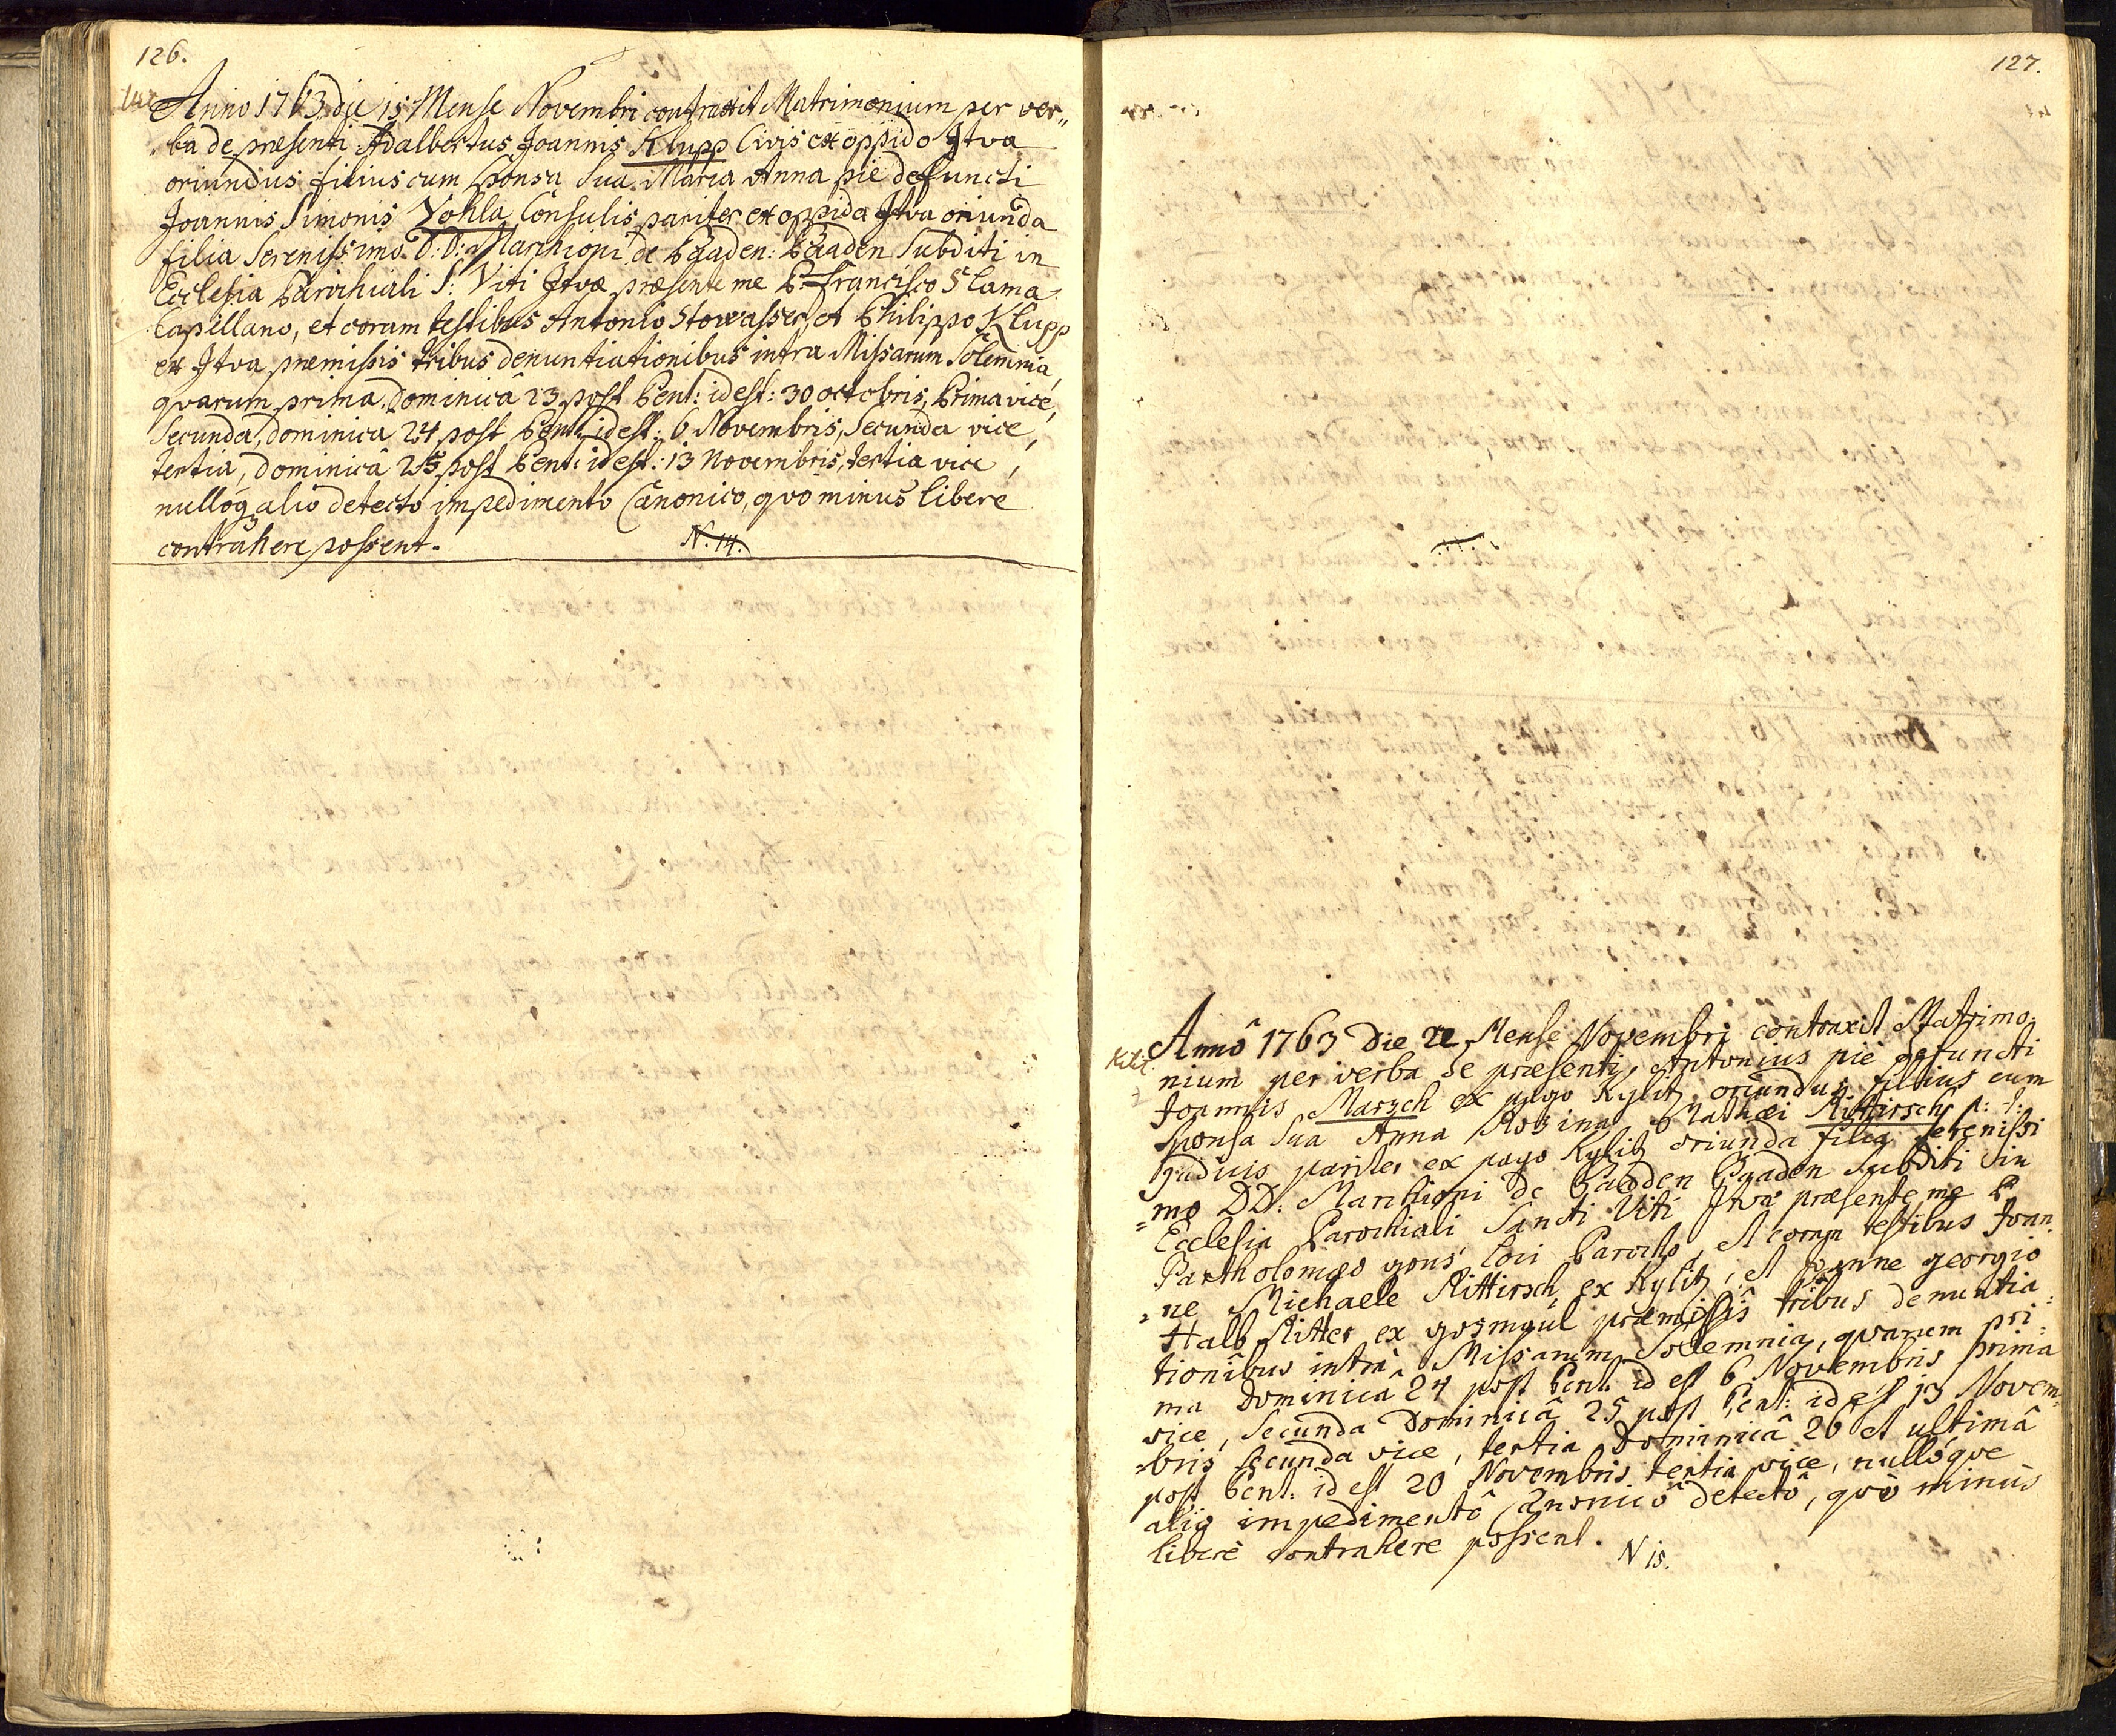 126.
Anno 1763 die 15 Mense Novembri contraxit Matrimonium per ver„
ba de præsenti Adalbertus Joannis Klupp Civis ex oppido Itva
oriundus filius cum Sponsa Sua Maria Anna pie defuncti
Joannis Simonis Vohla Consulis pariter ex oppido Itva oriunda
filia Serenissimo D: D: Marchioni de Baaden: Baaden Subditi in
Ecclesia Parochiali S: Viti Itvæ præsente me P. Francisco Slama
Capellano, et coram testibus Antonio Stowasser, et Philippo Klupp
ex Itva præmissis tribus denuntiationibus intra Missarum Solemnia,
qvarum prima, Dominicâ 23 post Pent: id est: 30 octobris, Prima vice,
Secunda, dominica 24 post Pent: id est: 6 Novembris, Secunda vice,
tertia, dominicâ 25 post Pent: id est: 13 Novembris, tertia vice,
nulloq alio detecto impedimento Canonico, qvo minus libere
contrahere possent.
N. 14.
127.
Kilit
Annô 1763 Die 22 Mense Novembri contraxit Matrimo:
nium per verba de præsenti, Antonius piè defuncti
Joannis Marzch ex pago Kylitz oriundus filius cum
Sponsa Sua Anna Rosina Mathæi Rittirsch p: t:
Judicis pariter ex pago Kylitz oriunda filia Serenissi
=mo DD: Marchioni de Baaden Baaden Subditi in
Ecclesia Parochiali Sancti Viti Itvæ præsente me P
Bartholomæo gons loci Parocho, et coram testibus Joan
=ne Michaele Rittirsch ex Kylitz, et Joanne georgio
Halb Ritter ex gosmaul præmissis tribus denuntia:
tionibus intra Missarum Solemnia, qvarum pri:
ma Dominicâ 24 post Pent: id est 6 Novembris prima
vice, Secunda Dominicâ 25 post Pent: id est 13 Novem
=bris secunda vice, tertia Dominicâ 26 et ultimâ
post Pent: id est 20 Novembris tertia vice, nullôqve
alio impedimentô Canonicô detectô, qvò minùs
liberè contrahere possent.
N 15.